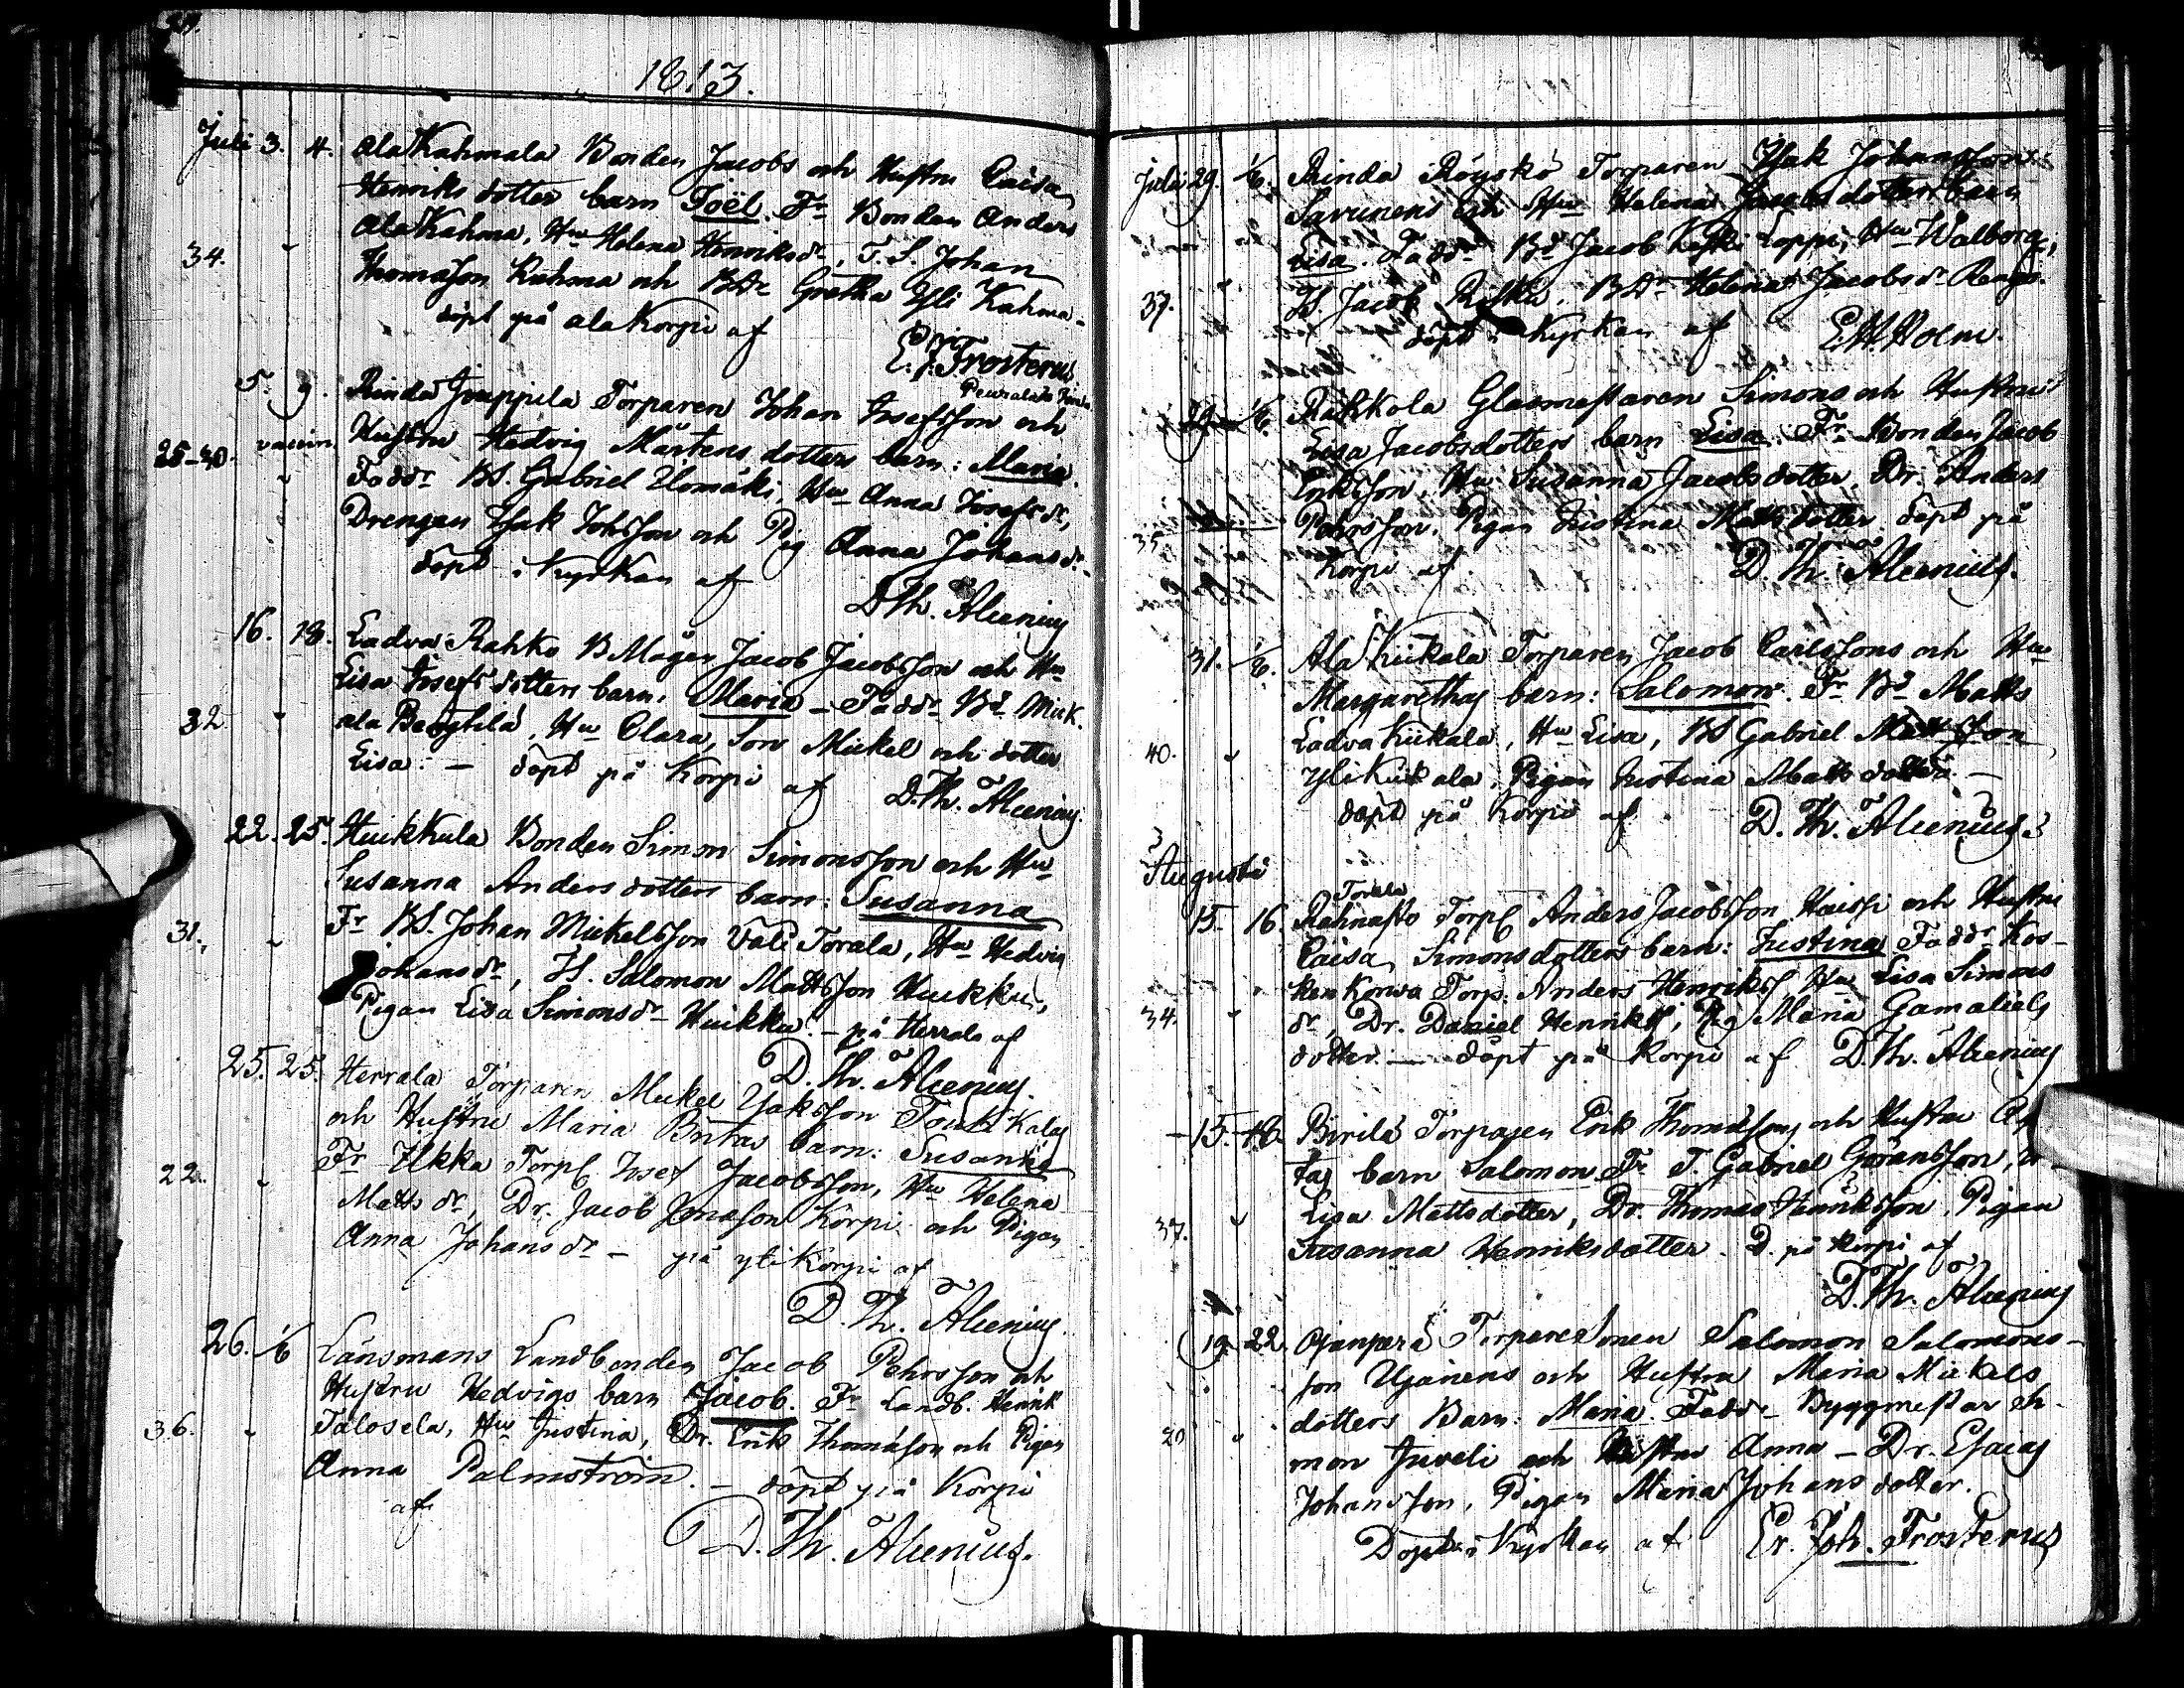 1813.
Juli 3. 4. Ala Kahmala Bonden Jacobs och Hustru Caisa
Henriks dotter barn Joël. Fr Bonden Anders
34. Ala Kahma, Hu Helena Henriksdr, T. S. Johan
Thomasson Kahma och BDr Gretha Yli Kahma
döpt på ala Korpi af
E. J. Frosterus
5. 9. Rinda Jouppila Torparen Johan Josefsson och
25-30. vaccin. Hustru Hedvig Mårtens dotters barn: Maria.
Faddr BS. Gabriel Ilomäki, Hu Anna Josefsdr,
Drengen Isak Johsson och Pig Anna Johansdr
döpt i Kyrkan af
D. Th. Alcenius
16. 18. Ladva Rahko B Mågen Jacob Jacobsson och Hu
Lisa Josefs dotters barn, Maria – Faddr Bd Mick.
32. ala , Hu Clara, Son Mickel och dotter
Lisa. – döpt på Korpi af
D. Th. Alcenius.
22. 25. Huikkula Bonden Simon Simonsson och Hu
Susanna Anders dotters barn: Susanna
31. Fr BS. Johan Mickelsson Vali Torala, Hu Hedvig
Johansdr, IS. Salomon Mattsson Huikku,
Pigan Lisa Simonsdr Huikku. – på Herrala af
D. Th. Alcenius.
25. 25. Herrala Torparen Mickel Isaksson
och Hustru Maria Britas barn: Susanna
22. Fr Ukka Torp Josef Jacobsson, Hu Helena
Matts dr, Dr. Jacob Jonasson Korpi och Pigan
Anna Johansdr – på yli Korpi af
D. Th. Alcenius.
26. 1/8 Länsmans Landbonden Jacob Pehrsson och
Hustru Hedvigs barn Jacob. Fr Landb. Henrik
36. Talosela, Hu Justina, Dr. Erik Thomasson och Pigan
Anna Palmström. – döpt på Korpi
af
D. Th. Alcenius.
Julii 29. 1/8. Rinda Röyskö Torparen Isak Johansson
Savunens och Hu Helena Jacobsdotters barn
Lisa. Faddr Bd Jacob Loppi, Hu Walborg,
37. IS. Jacob , BDr Helena Jacobsdr
döpt i Kyrkan af E. W. Holm.
29 1/8. Rahkola Glasmestaren Simons och Hustru
Lisa Jacobsdotters barn Lisa. Fr Bonden Jacob
Eriksson, Hu Susanna Jacobsdotter, Dr. Anders
Pehrsson, Pigan Justina Matts dotter. döpt på
35. Korpi af D. Th. Alcenius.
31. 1/8. Ala Kiikala Torparen Jacob Carlssons och Hu
Margarethas barn: Salomon. Fr Bd Matts
40. Ladva Kiikala, Hu Lisa, BS Gabriel Mattsson
yli Kiikala, Pigan Justina Matts dotter –
döpt på Korpi af D. Th. Alcenius
Augusti
Torala
15 16. Rahnasto Torp Anders Jacobsson Haissi och Hustru
Caisa Simonsdotters barn: Justina Faddr Kos-
ken Korva Torp. Anders Henriks Hu Lisa Simons
34. dr, Dr. Daniel Henriks, Pig Maria Gamaliels
dotter. – döpt på Korpi af D. Th. Alcenius
15. 18. Pirilä Torparen Erik Thomassons och Hustru
tas barn Salomon. Fr T. Gabriel Göransson,
37. Lisa Mattsdotter, Dr. Thomas Henriksson, Pigan
Susanna Henriksdotter. D. på Korpi af
D. Th. Alcenius
19 22. Ojanperä Torparesonen Salomon Salomons-
son Ujainens och Hustru Maria Mickels
dotters Barn: Maria. Faddr Byggmestar
20 mon Juveli och Hustru Anna – Dr. Esaias
Johansson, Pigan Maria Johans dotter.
Döpt i Kyrkan af Er. Joh. Frosterus